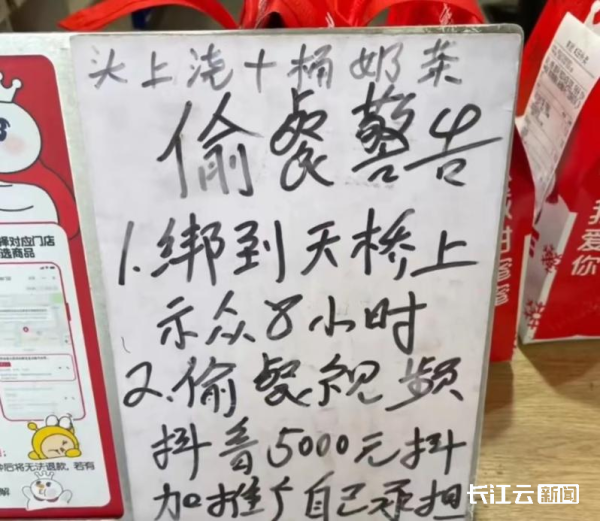 头上浇十桶奶茶
偷餐警告
1.绑到天桥上
示众8小时
2.偷餐视频
抖音5000元抖
加推广自己承担
择对应门店
选商品
后将无法退款,若有
解
我
爱
你
蜜
蜜
长江云新闻